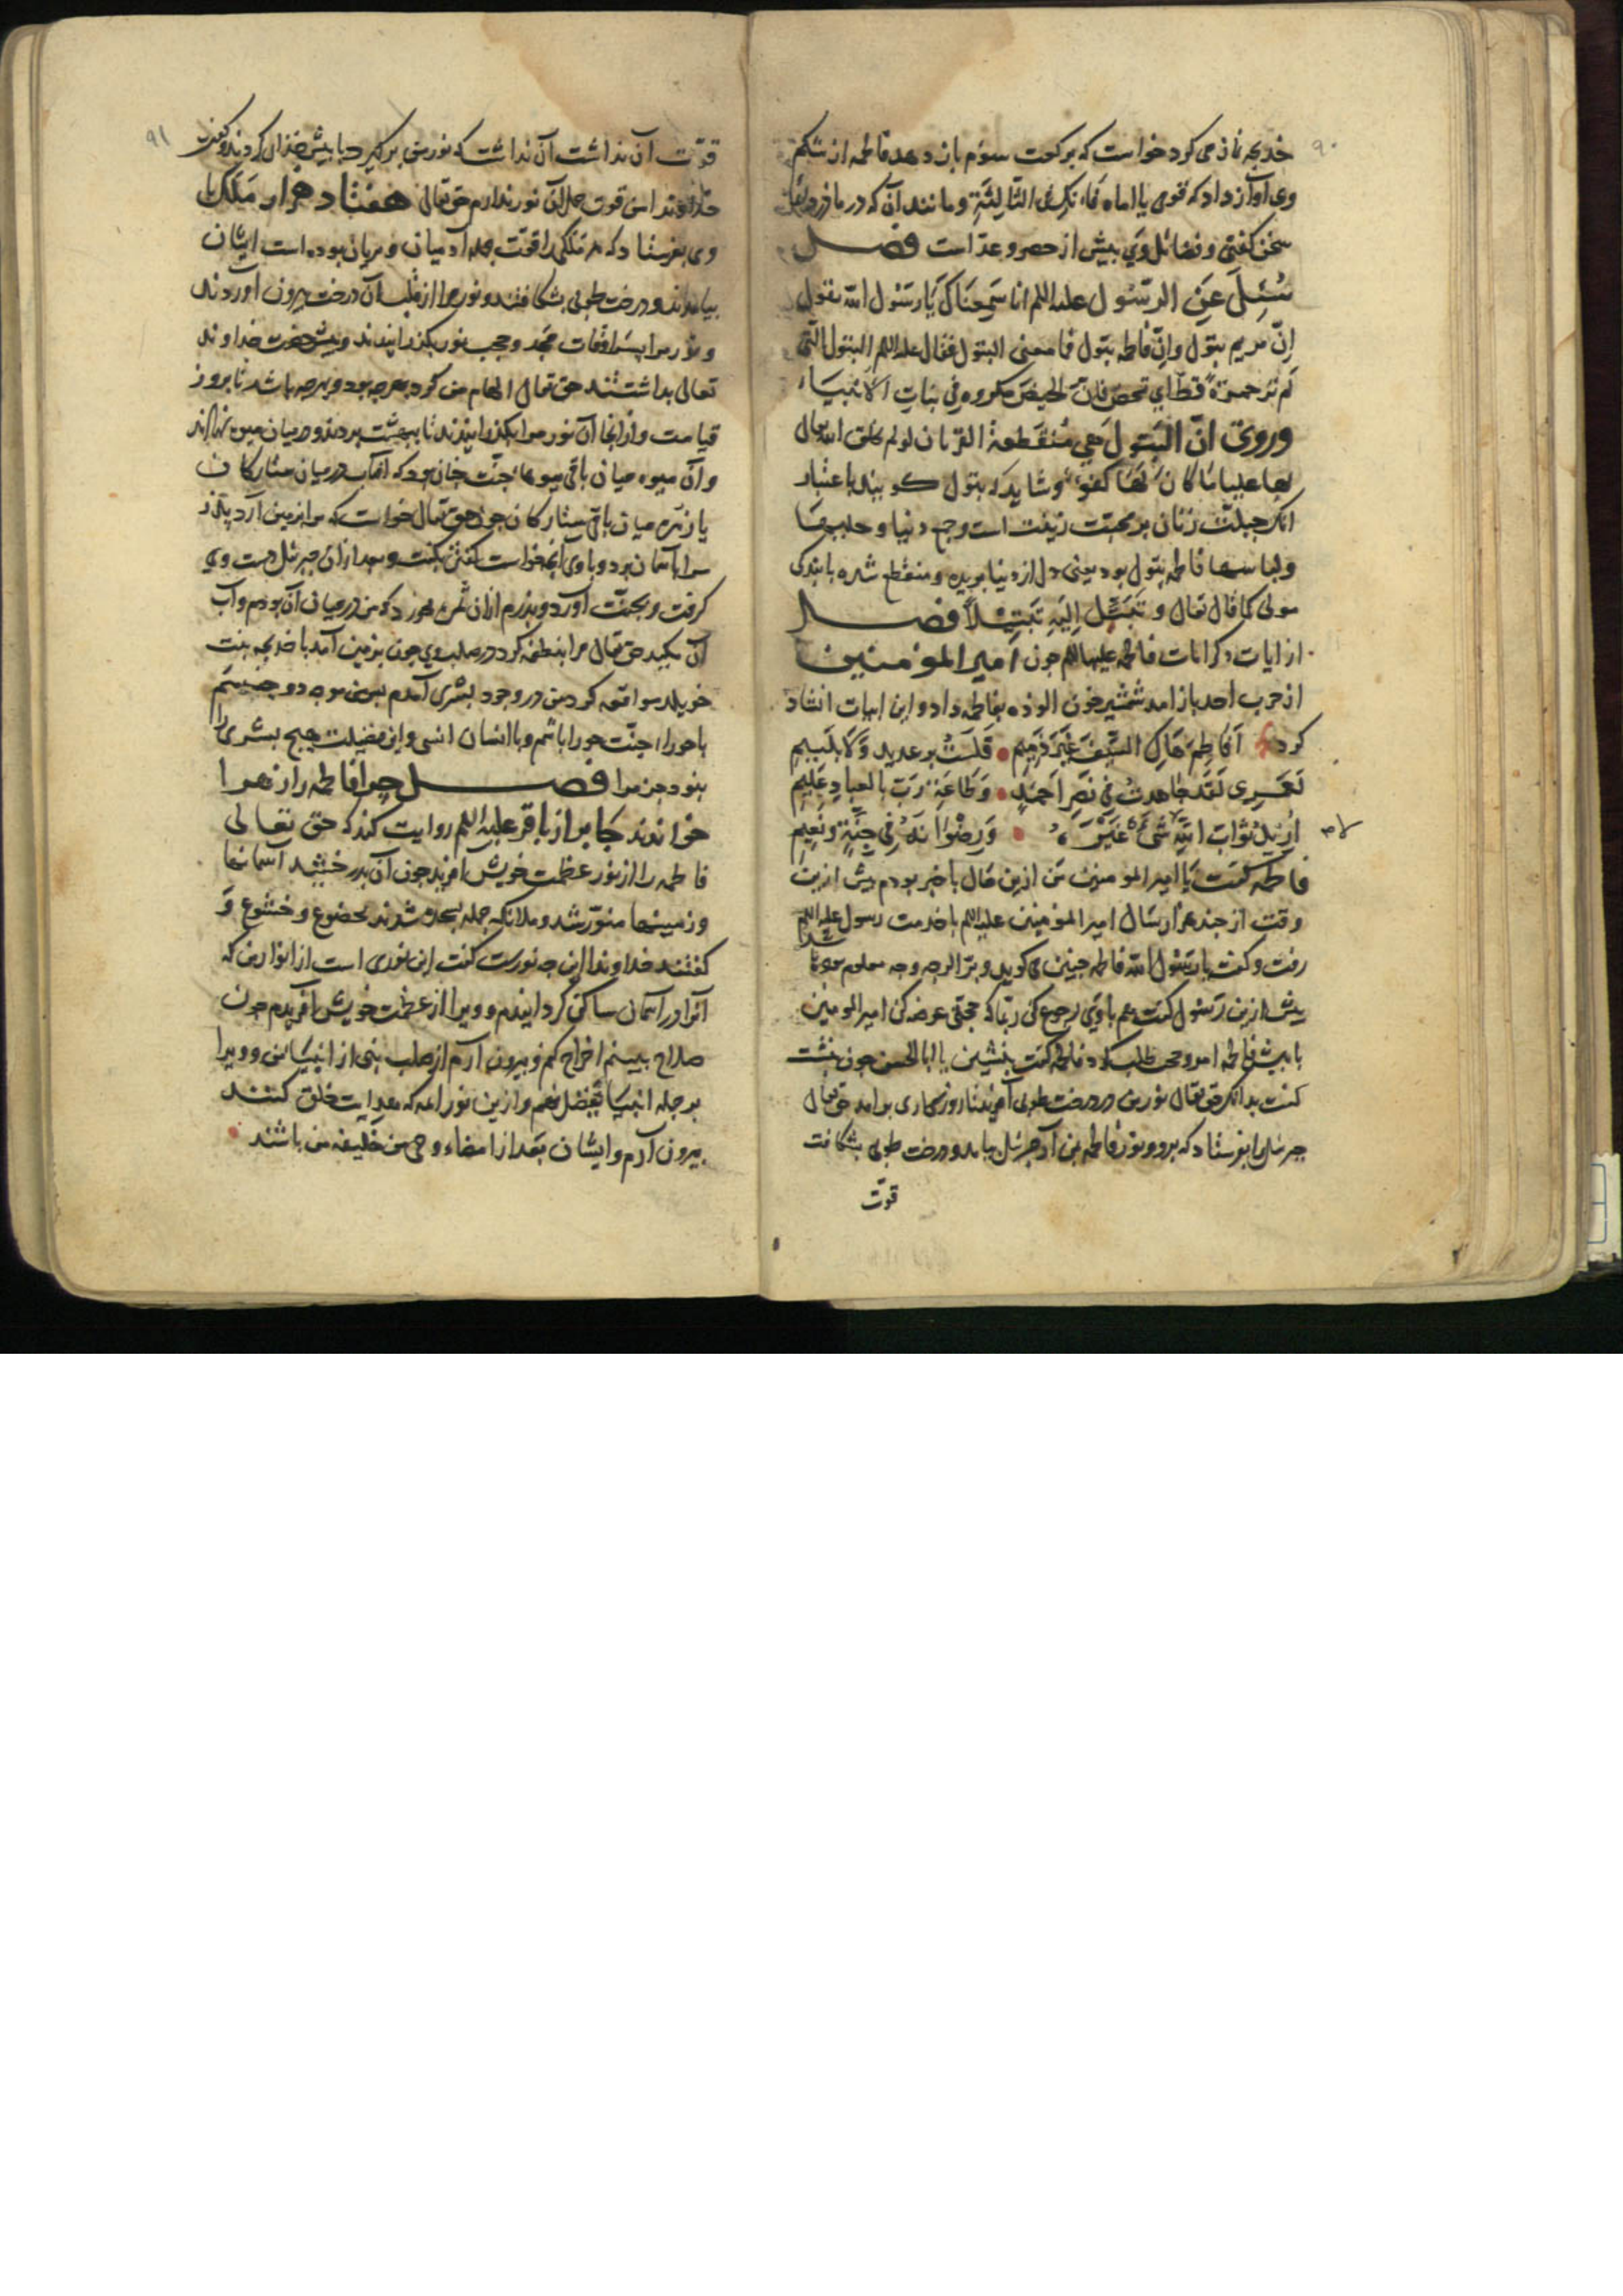 ۹۰
خدیجه نماز می کرد خواست که برکعت سوم باز دهد فاطمه از شکم
وی آواز داد که قومی یا اماه فانک فی الثالثة و مانند آن که در مادر
سخن گفتی و فضائل وی بیش از حصر و عد است فصل
سُئِلَ عَنِ الرسول علیه السلم انا سَمِعناکَ یا رسول الله تقول
اِنّ مریم بتول و اِنّ فاطمه بتول فما معنی البتول فقال علیه السلم البتول الّتی
لم تر حمرة قط ای لم تحض فان الحیض مکروه فی بنات الانبیاء
وروی انّ البتول هی منقطعة القران لو لم یخلق الله تعالی
لها علیا ما کان لها کفو و شاید که بتول گویند باعتبار
انک جبلت زنان بر محبت زینت است و جمع دنیا و حلیها
ولباسها فاطمه بتول بود یعنی دل از دنیا بریده و منقطع شده بابندگی
مولی کما قال تعالی و تَبَتَّل اِلَیهِ تَبتیلاً فصل
از ایات و کرامات فاطمه علیها السلم چون امیرالمؤمنین
از حرب احد باز امد شمشیر خون الوده بفاطمه داد و این ابیات انشاد
کرد اَفاطِمَ هاکِ السَّیفَ غَیرَ ذَمِیم • فَلَستُ برعدید وَلا بلئیمِ
لَعَمری لَقَد جاهدتُ فی نَصرِ اَحمَدٍ • وَطاعَةِ رَبّ بالعبادِ عَلیمِ
اُریدُ ثوابَ اللهِ لا شیءَ غَیرَهُ • وَرِضوانَهُ فی جنّةٍ ونَعیمِ
فاطمه گفت یا امیر المومنین من ازین حال با خبر بودم پیش ازین
وقت از چند هزار سال امیر المؤمنین علیه السلم باخدمت رسول علیه السلم
رفت و گفت یا رسول الله فاطمه چنین می گوید و برّا لوجه وجه معلوم
پیش ازین رسول گفت باوی رجوع کن ربما که حجتی عرضه کن امیر المومنین
با پیش فاطمه امد و حجت طلب کرد فاطمه گفت بنشین یا ابا الحسن چون بنشست
گفت بدانک حق تعالی نور من در درخت طوبی آفرید تا روزگاری بر امد حق تعالی
جبرئیل را بفرستاد که برو و نور فاطمه بمن آر جبرئیل بیامد و درخت طوبی بشکافت
قوّت
۹۱
قوّت آن نداشت که نور من برگیرد با پیش خدای کردند و گفت
خداوندا من قوت حمل آن نور ندارم حق تعالی هفتاد هزار مَلَک با
وی بفرستاد که هر ملکی را قوّت جمله آدمیان و پریان بوده است ایشان
بیامدند و درخت طوبی بشکافتند و نور مرا از قلب آن درخت بیرون آوردند
و نور مرا بسرادقات مجد و حجب نور بگذرانیدند و پیش حضرت خداوند
تعالی بداشتند حق تعالی الهام من کرد بهرچه بود و بهرچه باشد تا بروز
قیامت و از انجا آن نور مرا بگذرانیدند تا ببهشت بردند و در میان میوه نهادند
و آن میوه میان باقی میوهاء جنّت چنان بود که آفتاب در میان ستارگان
یا زهره میان باقی ستارگان چون حق تعالی خواست که مرا بزمین آرد پدرم
مرا بآسمان برد و باوی آنچه خواست گفتن بگفت و بعد از آن جبرئیل دست وی
گرفت و بجنّت آورد و پدرم از ان ثمره بخورد که من در میان آن بودم و آب
آن بمکید حق تعالی مرا نطفه کرد در صلب وی چون بزمین آمد با خدیجه بنت
خویلد مواقعه کرد من در وجود بشری آمدم
با حوراء جنّت حورا باشم و با انسان انسی و این فضیلت هیچ بشری را
بنود جز مرا فصل چرا فاطمه را زهرا
خوانند جابر از باقر علیه السلم روایت کند که حق تعالی
فاطمه را از نور عظمت خویش آفرید چون آن بدرخشید آسمانها
و زمینها منوّر شد و ملائکه جمله بسجده شدند بخضوع و خشوع و
گفتند خداوندا این چه نورست گفت این نوری است از انوار من که
آنرا در آسمان ساکن گردانیدم و ویرا از عظمت خویش آفریدم چون
صلاح بینم اخراج کنم و بیرون آرم از صلب نبی از انبیا من و ویرا
بر جمله انبیا تفضیل نهم و ازین نور ائمه که بهدایت خلق کنند
بیرون آرم و ایشان بعد از امضاء وحی من خلیفه من باشند •